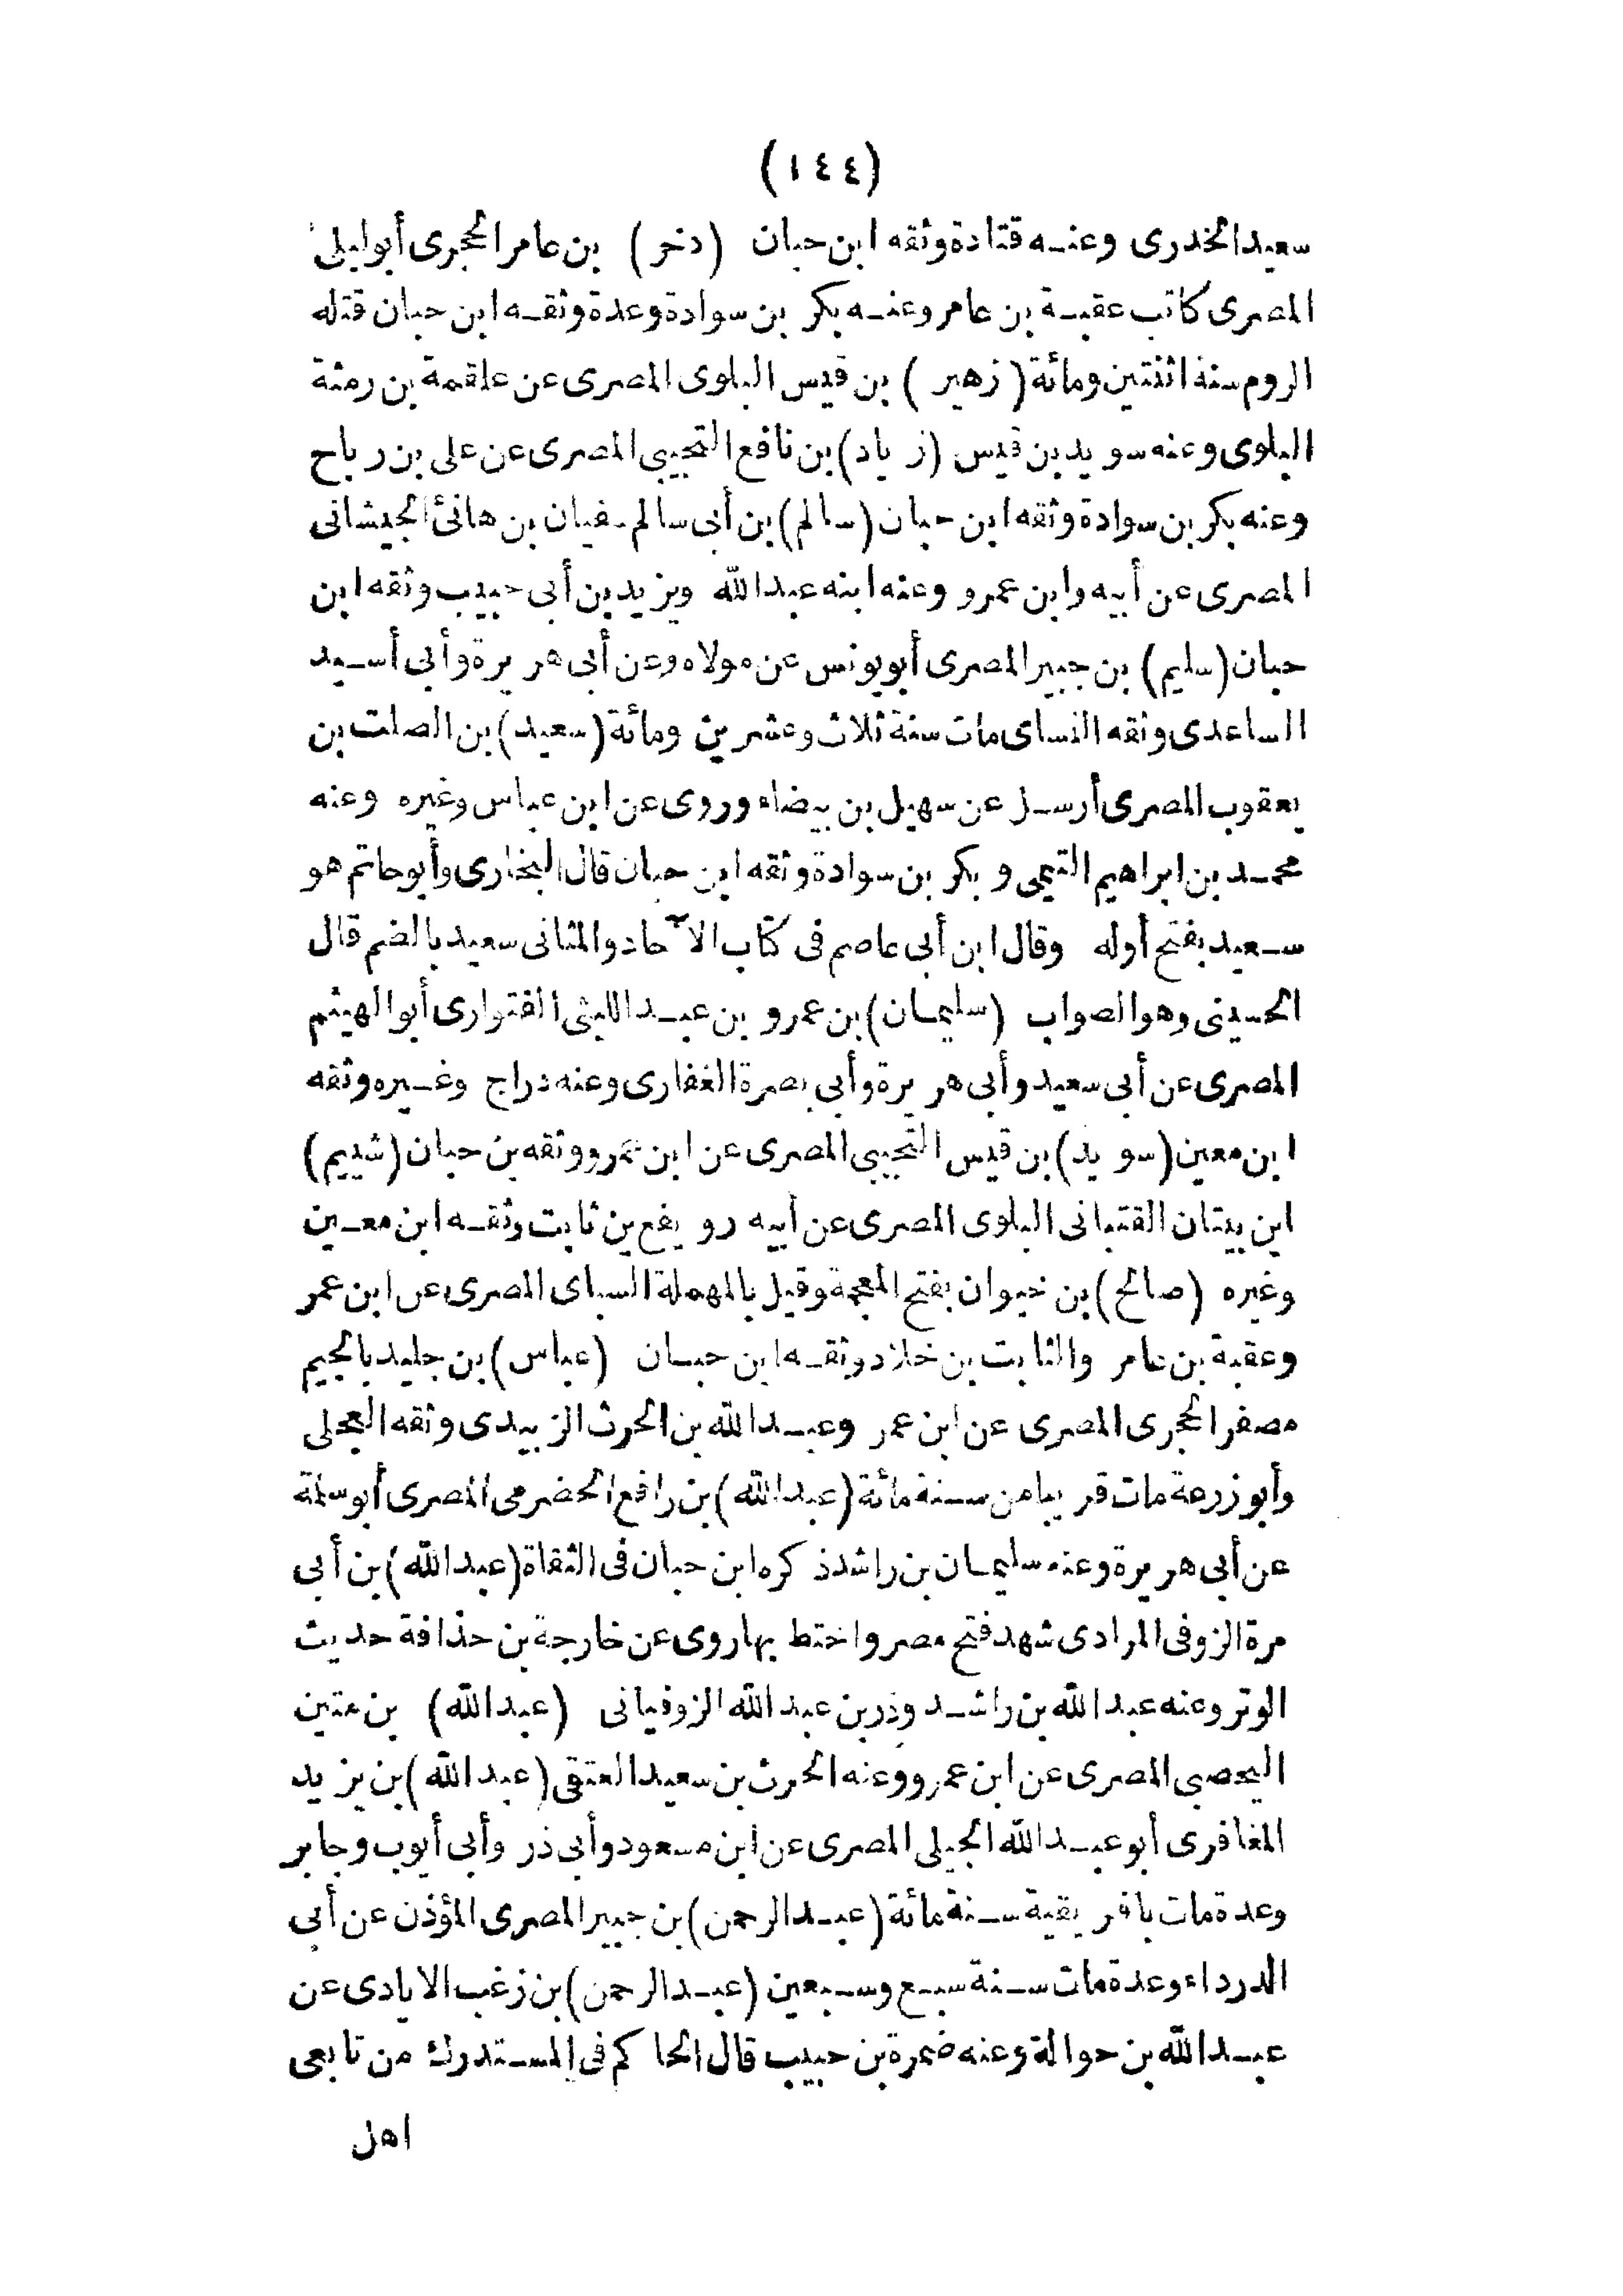 (١٤٤)
سعيد الخدرى وعنه قتادة وثقه ابن حبان (دخر) بن عامر الحجرى أبو ليلى
المصرى كاتب عقبة بن عامر وعنه بكر بن سوادة وعدة وثقه ابن حبان قتله
الروم سنة اثنتين ومائة (زهير) بن قيس البلوى المصرى عن علقمة بن رمثة
البلوى وعنه سويد بن قيس (زياد) بن نافع التجيبى المصرى عن على بن رباح
وعنه بكر بن سوادة وثقه ابن حبان (سالم) بن أبى سالم سفيان بن هانئ الجيشانى
المصرى عن أبيه وابن عمرو وعنه ابنه عبد الله ويزيد بن أبى حبيب وثقه ابن
حبان (سليم) بن جبير المصرى أبو يونس عن مولاه وعن أبى هريرة وأبى أسيد
الساعدى وثقه النساى مات سنة ثلاث وعشرين ومائة (سعيد) بن الصلت بن
يعقوب المصرى أرسل عن سهيل بن بيضاء وروى عن ابن عباس وغيره وعنه
محمد بن ابراهيم التيمى وبكر بن سوادة وثقه ابن حبان قال البخارى وأبو حاتم هو
سعيد بفتح أوله وقال ابن أبى عاصم فى كتاب الآحاد والمثانى سعيد بالضم قال
الحسينى وهو الصواب (سليمان) بن عمرو بن عبد الليثى الفتوارى أبو الهيثم
المصرى عن أبى سعيد وأبى هريرة وأبى بصرة الغفارى وعنه دراج وغيره وثقه
ابن معين (سويد) بن قيس التجيبى المصرى عن ابن عمرو وثقه بن حبان (شييم)
ابن بيتان القتبانى البلوى المصرى عن أبيه رويفع بن ثابت وثقه ابن معين
وغيره (صالح) بن خيوان بفتح المعجمة وقيل بالمهملة السباى المصرى عن ابن عمر
وعقبة بن عامر والثابت بن خلاد وثقه ابن حبان (عباس) بن جليد بالجيم
مصغر الحجرى المصرى عن ابن عمر وعبد الله بن الحرث الزبيدى وثقه العجلى
وأبو زرعة مات قريبا من سنة مائة (عبد الله) بن رافع الحضرمى المصرى أبو سلمة
عن أبى هريرة وعنه سليمان بن راشد ذكره ابن حبان فى الثقاة (عبد الله) بن أبى
مرة الزوفى المرادى شهد فتح مصر واختط بها روى عن خارجة بن حذافة حديث
الوتر وعنه عبد الله بن راشد وذر بن عبد الله الزوفيانى (عبد الله) بن متين
اليحصبى المصرى عن ابن عمرو وعنه الحرث بن سعيد العتقى (عبد الله) بن يزيد
المغافرى أبو عبد الله الجبلى المصرى عن ابن مسعود وأبى ذر وأبى أيوب وجابر
وعدة مات بافريقية سنة مائة (عبد الرحمن) بن جبير المصرى المؤذن عن أبى
الدرداء وعدة مات سنة سبع وسبعين (عبد الرحمن) بن زغب الايادى عن
عبد الله بن حوالة وعنه ضمرة بن حبيب قال الحاكم فى المستدرك من تابعى
اهل